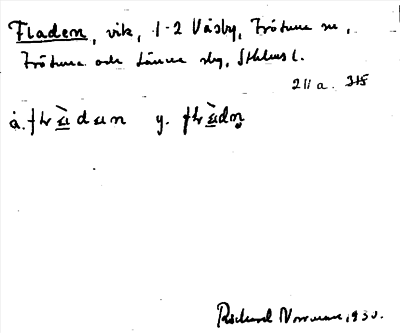 Fladen, vik, 1-2 Väsby, Frötuna sn,
Frötuna och Länna skg, Sthlms l.
211 a. 318
å. y.
Rickard Norrman, 1930.